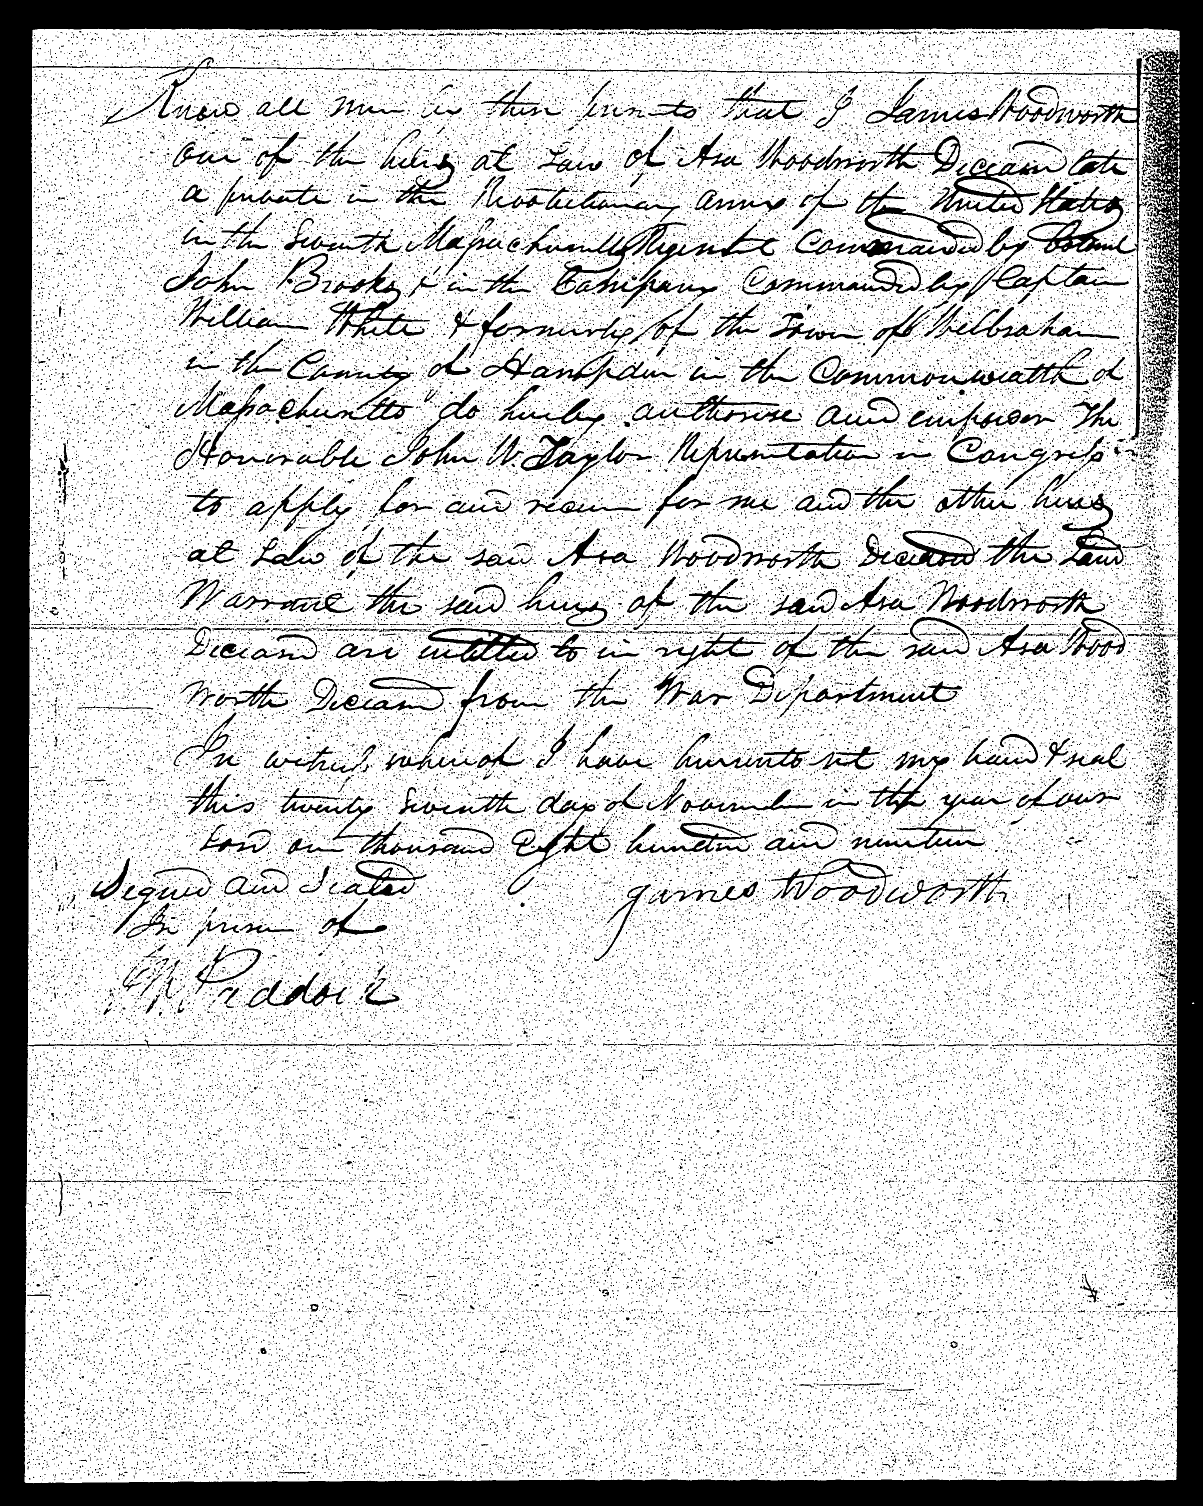 Know all men by these presents that I James Woodworth
one of the heirs at Law of Asa Woodworth Deceased late
a private in the Revolutionary army of the United States
in the Seventh Massachusetts Regiment Commanded by Colonel
John Brooks & in the Company Commanded by Captain
William White & formerly of the Town of Wilbraham
in the County of Hampden in the Commonwealth of
Massachusetts do hereby authorise and empower The
Honorable John W. Taylor Representative in Congress
to apply for and receive for me and the other heirs
at Law of the said Asa Woodworth Deceased the Land
Warrant the said heirs of the said Asa Woodworth
Deceased are intitled to in right of the said Asa Wood
worth Deceased from the War Department
In witness whereof I have hereunto set my hand & seal
this twenty Seventh day of November in the year of our
Lord one thousand Eight hundred and nineteen
Signed and Sealed James Woodworth
In presence of
Paddock